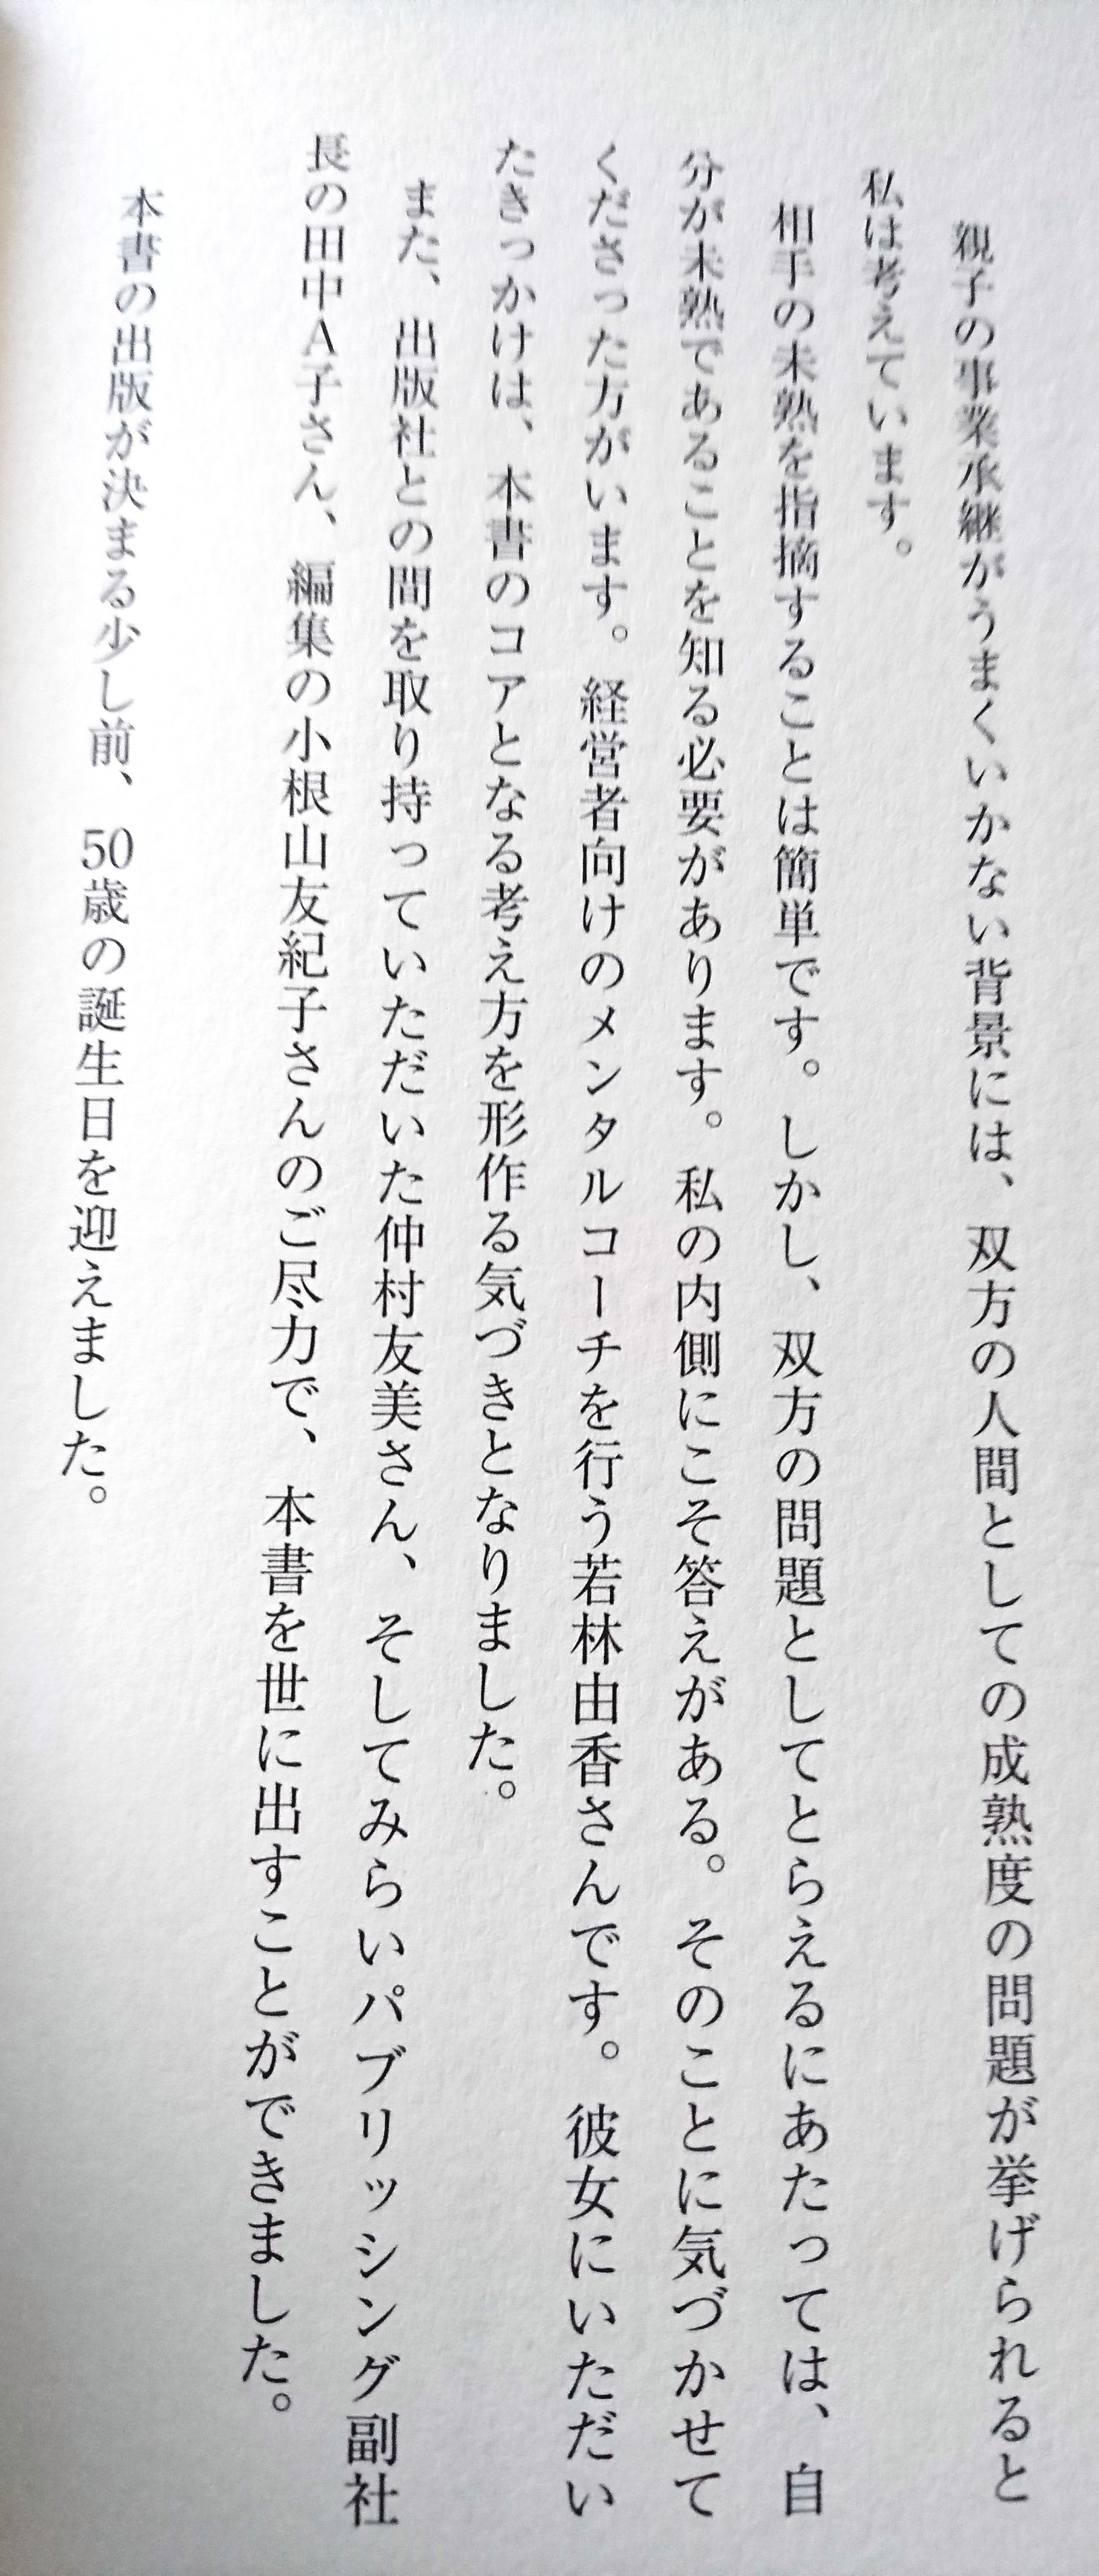 親子の事業承継がうまくいかない背景には、双方の人間としての成熟度の問題が挙げられると
私は考えています。
相手の未熟を指摘することは簡単です。しかし、双方の問題としてとらえるにあたっては、自
分が未熟であることを知る必要があります。私の内側にこそ答えがある。そのことに気づかせて
くださった方がいます。経営者向けのメンタルコーチを行う若林由香さんです。彼女にいただい
たきっかけは、本書のコアとなる考え方を形作る気づきとなりました。
また、出版社との間を取り持っていただいた仲村友美さん、そしてみらいパブリッシング副社
長の田中A子さん、編集の小根山友紀子さんのご尽力で、本書を世に出すことができました。
本書の出版が決まる少し前、50歳の誕生日を迎えました。